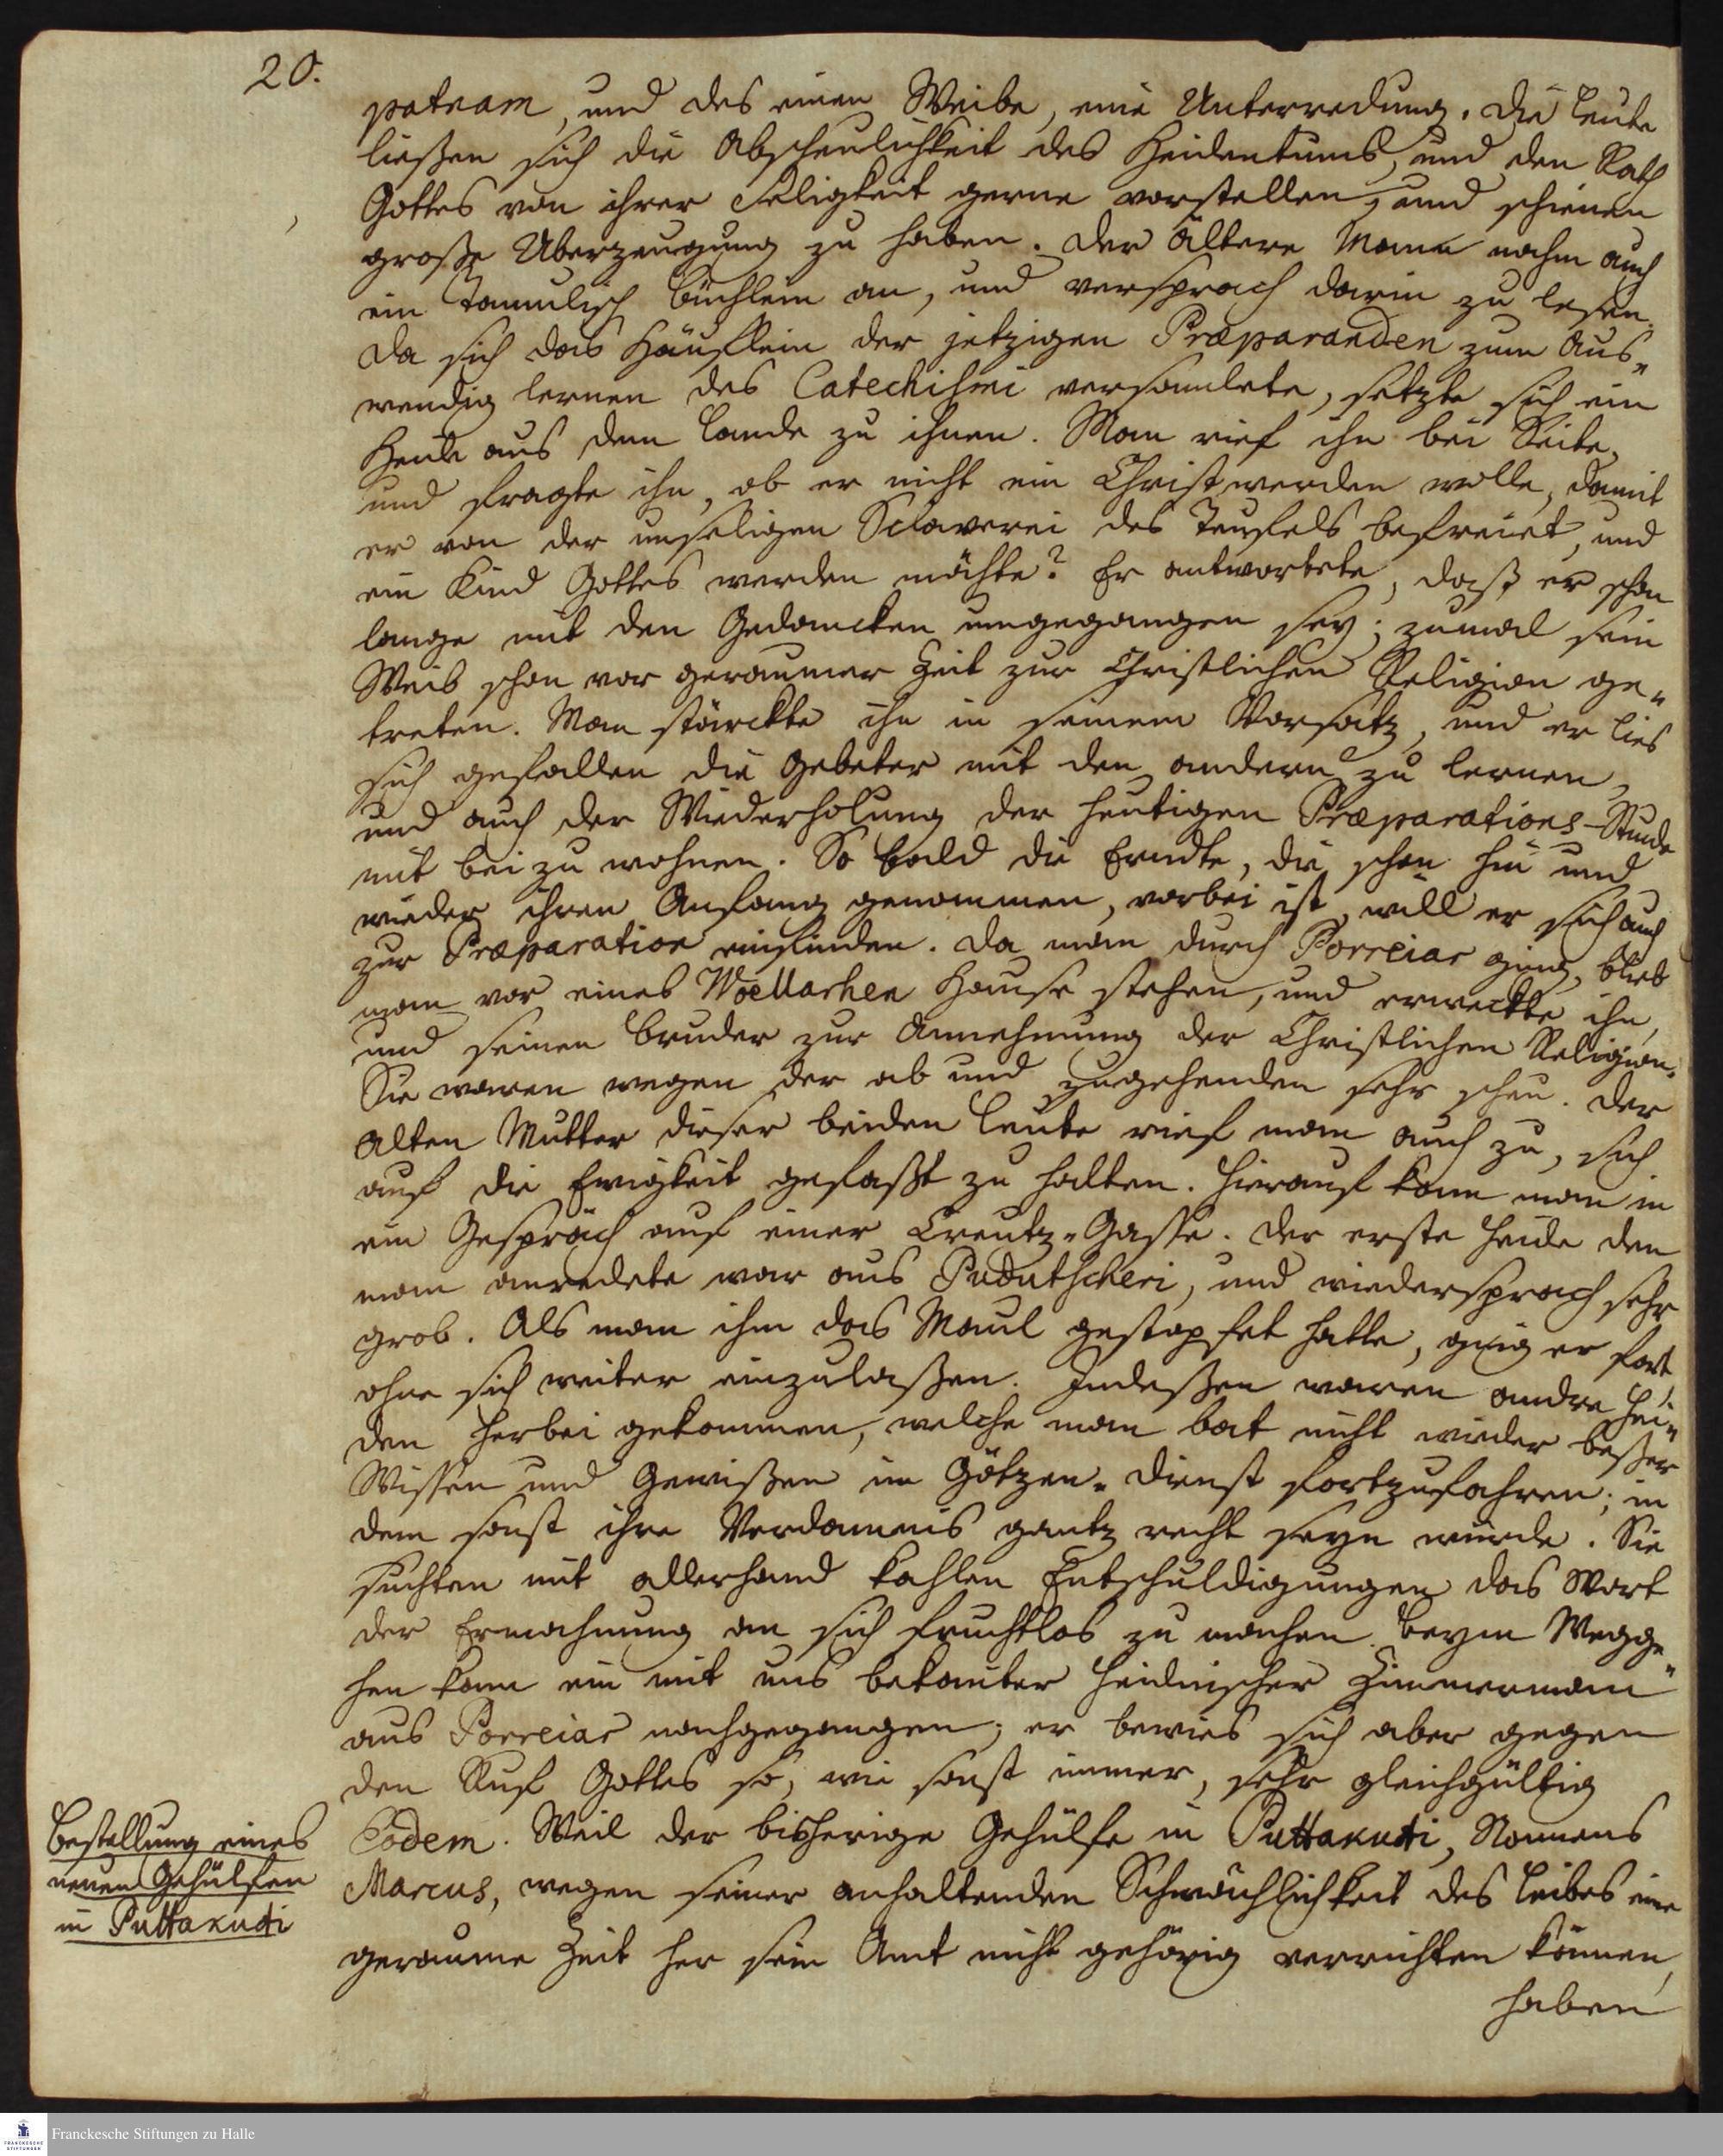 20.
patnam, und des einen Weibe, eine Unterredung. Die Leute
ließen sich die Abscheulichkeit des Heidentums, und den Rath
Gottes von ihrer Seligkeit gerne vorstellen, und schienen
große Uberzeugung zu haben. Der ältere Mann nahm auch
ein Tamulisch Büchlein an, und versprach darin zu lesen.
Da sich das Häuflein der jetzigen Præparanden zum Aus„
wendig lernen des Catechismi versamlete, setzte sich ein
Heide aus dem Lande zu ihnen. Man rief ihn bei Seite,
und fragte ihn, ob er nicht ein Christ werden wolle, damit
er von der unseligen Sclaverei des Teufels befreiet, und
ein Kind Gottes werden möchte? Er antwortete, daß er schon
lange mit den Gedancken umgegangen sey; zumal sein
Weib schon vor geraumer Zeit zur Christlichen Religion ge„
treten. Man stärckte ihn in seinem Vorsatz, und er lies
sich gefallen die Gebeter mit den andern zu lernen,
und auch der Wiederholung der heutigen Præparations-Stunde
mit bei zu wohnen. So bald die Erndte, die schon hin und
wieder ihren Anfang genommen, vorbei ist, will er sich auch
zur Præparation einfinden. Da man durch Porreiar ging, blieb
man vor eines Woellarhen Hause stehen, und erweckte ihn,
und seinen Bruder zur Annehmung der Christlichen Religion.
Sie waren wegen der ab und zugehenden sehr scheu. Der
alten Mutter dieser beiden Leute rief man auch zu, sich
auf die Ewigkeit gefaßt zu halten. Hierauf kam man in
ein Gespräch auf einer Creutz-Gasse. Der erste Heide den
man anredete war aus Pudutscheri, und wiedersprach sehr
grob. Als man ihm das Maul gestopfet hatte, ging er fort
ohne sich weiter einzulaßen. Indeßen waren andre Hei„
den herbei gekommen, welche man bat nicht wieder beßer
Wissen und Gewißen im Götzen-Dienst fortzufahren; in
dem sonst ihre Verdamnis gantz recht seyn würde. Sie
suchten mit allerhand kahlen Entschuldigungen das Wort
der Ermahnung an sich fruchtlos zu machen. Beym Wegge„
hen kam ein mit uns bekanter heidnischer Zimmerman
aus Porreiar nachgegangen; er bewies sich aber gegen
den Ruf Gottes so, wie sonst immer, sehr gleichgültig
Bestellung eines
neuen Gehülfen
in Puttakudi
Eodem. Weil der bisherige Gehülfe in Puttakudi, Namens
Marcus, wegen seiner anhaltenden Schwächlichkeit des Leibes eine
geraume Zeit her sein Amt nicht gehörig verrichten können,
haben
Franckesche Stiftungen zu Halle
FRANCKESCHE
STIFTUNGEN